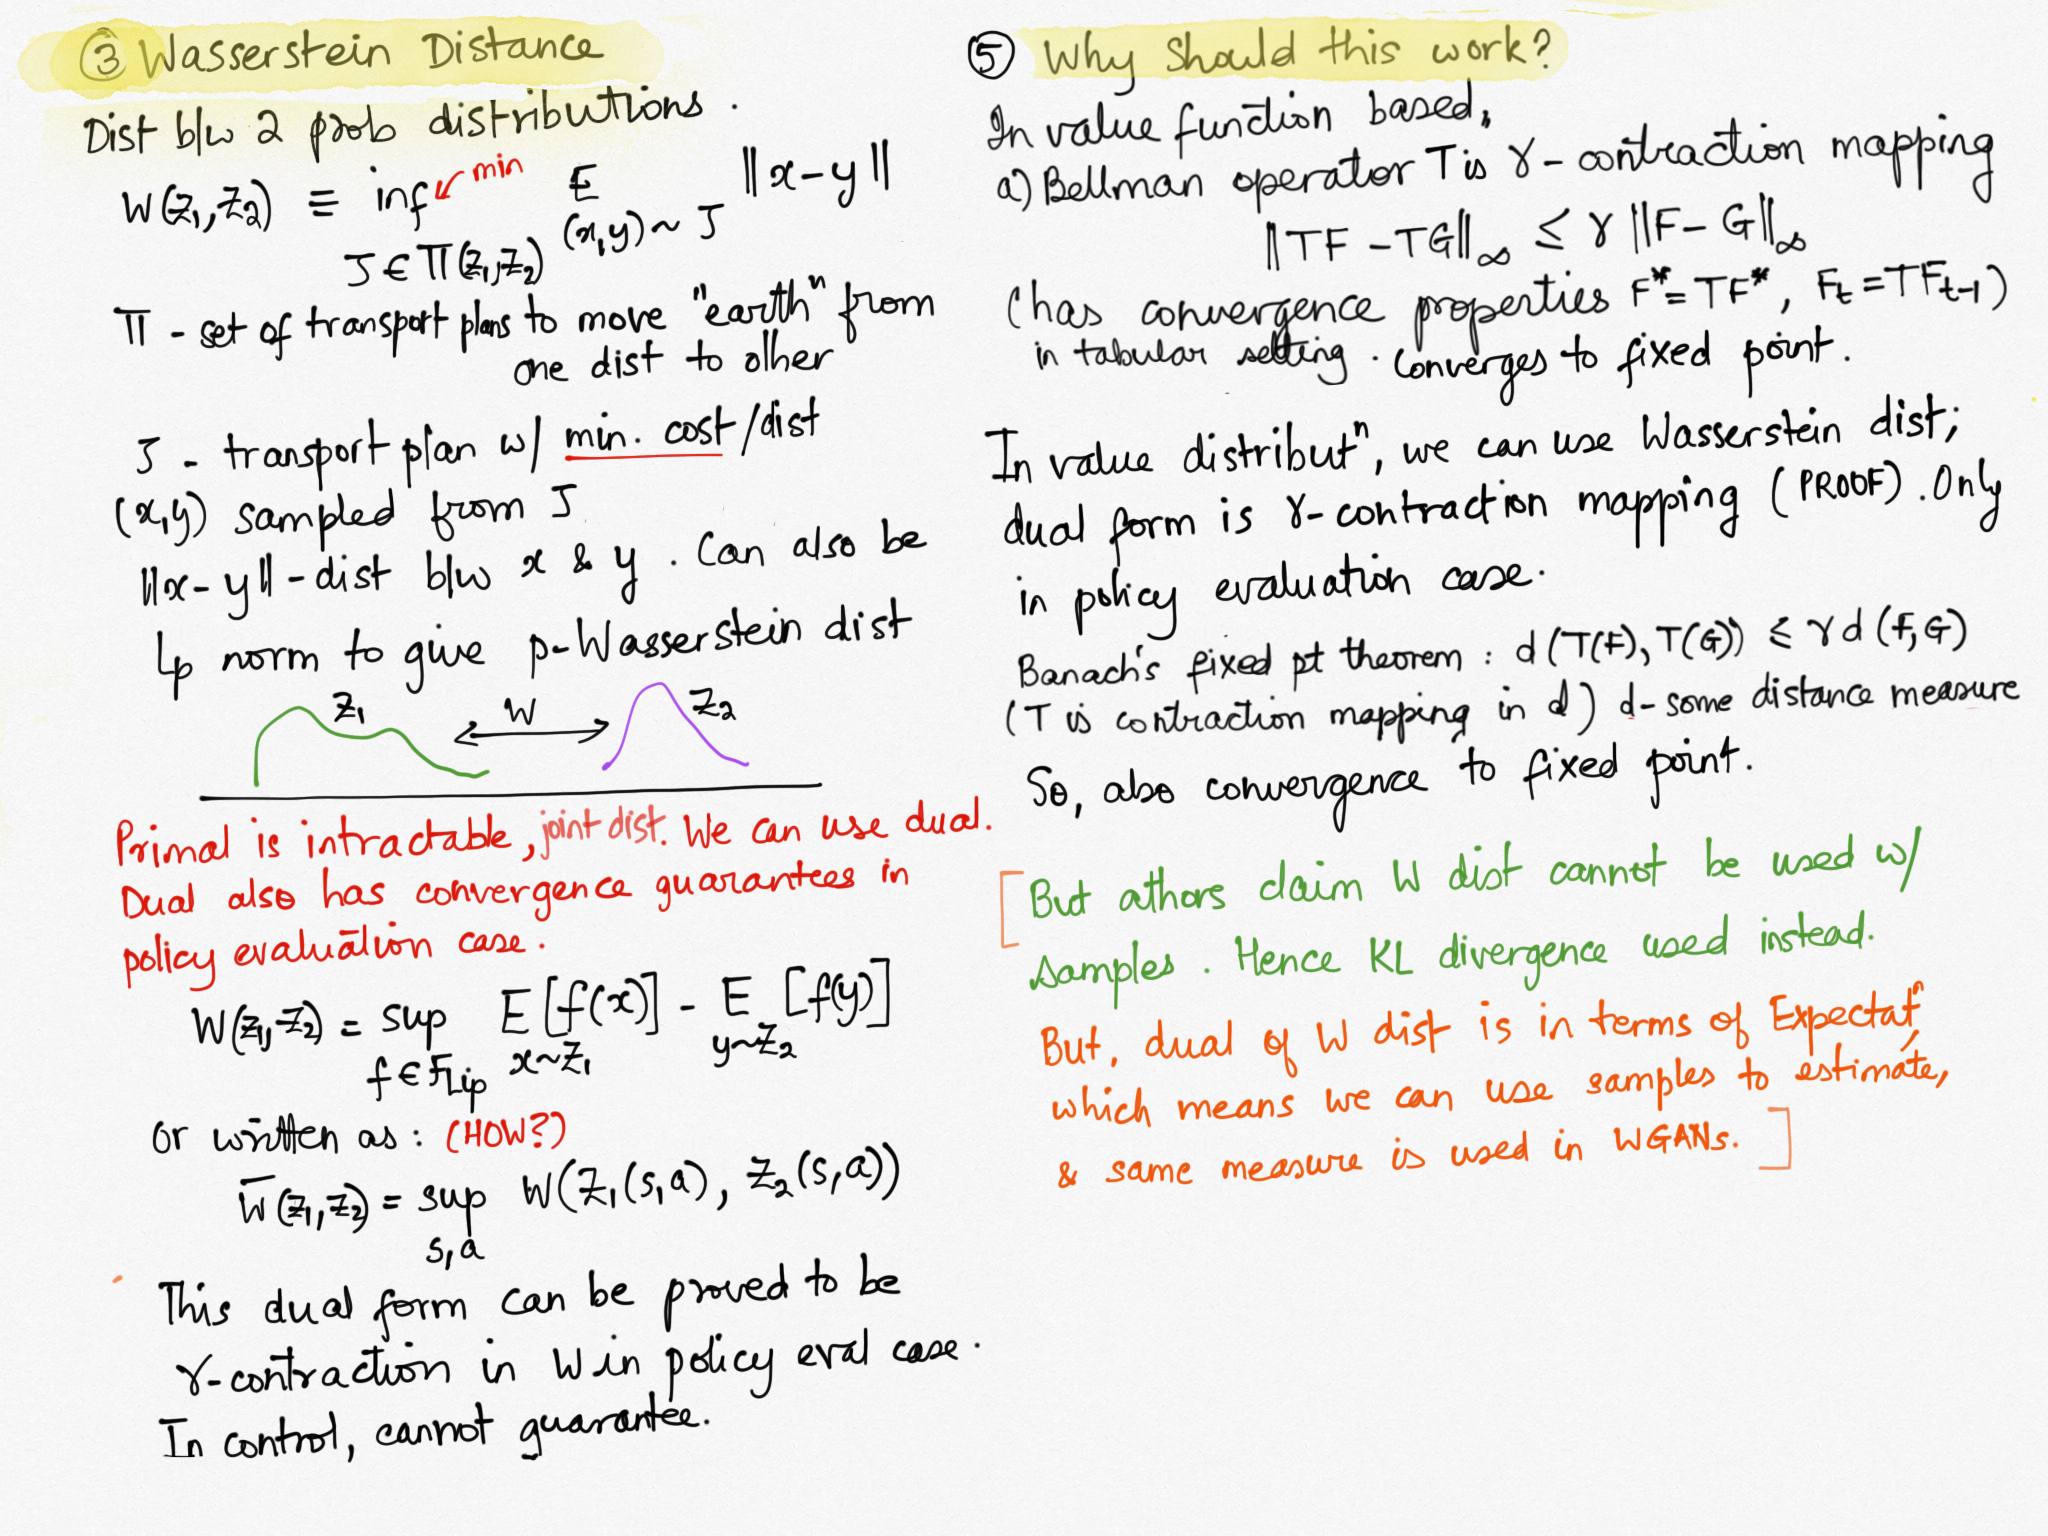 ③ Wasserstein Distance
Dist b/w 2 prob distributions.
W(Z₁,Z₂) ≡ inf E ‖x-y‖
min
J ∈ Π(Z₁,Z₂) (x,y)~J
Π - set of transport plans to move "earth" from
one dist to other
J - transport plan w/ min. cost/dist
(x,y) sampled from J
‖x-y‖ - dist b/w x & y. Can also be
Lp norm to give p-Wasserstein dist
Z₁ W Z₂
Primal is intractable, joint dist. We can use dual.
Dual also has convergence guarantees in
policy evaluation case.
W(Z₁,Z₂) = sup E[f(x)] - E[f(y)]
f ∈ FLip x~Z₁ y~Z₂
or written as: (HOW?)
W̄(Z₁,Z₂) = sup W(Z₁(s,a), Z₂(s,a))
s,a
This dual form can be proved to be
γ-contraction in W in policy eval case.
In control, cannot guarantee.
⑤ Why should this work?
In value function based,
a) Bellman operator T is γ-contraction mapping
‖TF - TG‖∞ ≤ γ ‖F-G‖∞
(has convergence properties F* = TF*, Ft = TFt-1)
in tabular setting. Converges to fixed point.
In value distributⁿ, we can use Wasserstein dist;
dual form is γ-contraction mapping (PROOF). Only
in policy evaluation case.
Banach's fixed pt theorem: d(T(F), T(G)) ≤ γ d(F,G)
(T is contraction mapping in d) d - some distance measure
So, also convergence to fixed point.
[But athors claim W dist cannot be used w/
samples. Hence KL divergence used instead.
But, dual of W dist is in terms of Expectatⁿ,
which means we can use samples to estimate,
& same measure is used in WGANs.]